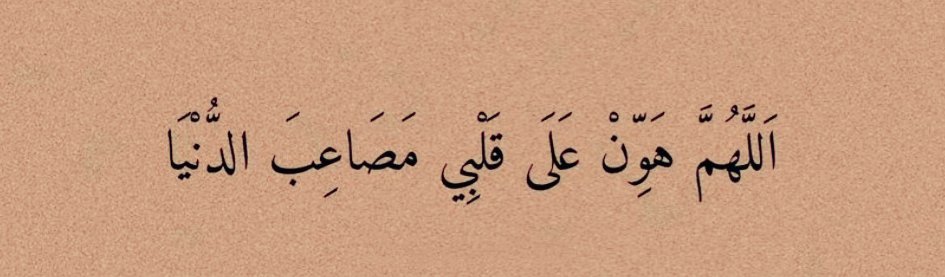 اَللَّهُمَّ هَوِّنْ عَلَى قَلْبِي مَصَاعِبَ الدُّنْيَا